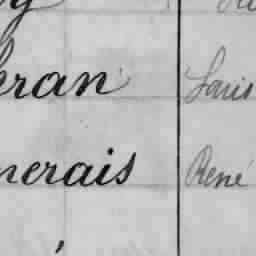 eran Louis
nerais René